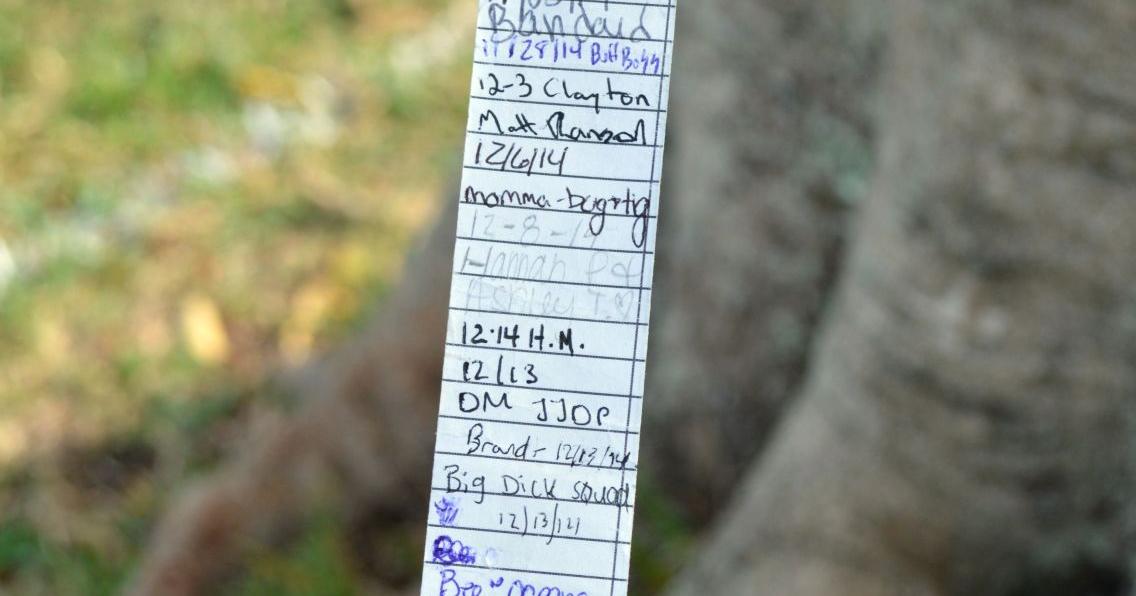 Bandaid
11/28/14 Butt Buggy
12-3 Clayton
Matt
12/6/14
momma-bugrtig
12-8-14
Hannah P &
Ashley T. ♡
12·14 H.M.
12/13
DM JJOP
Brand- 12/13/14
Big Dick squad
12/13/14